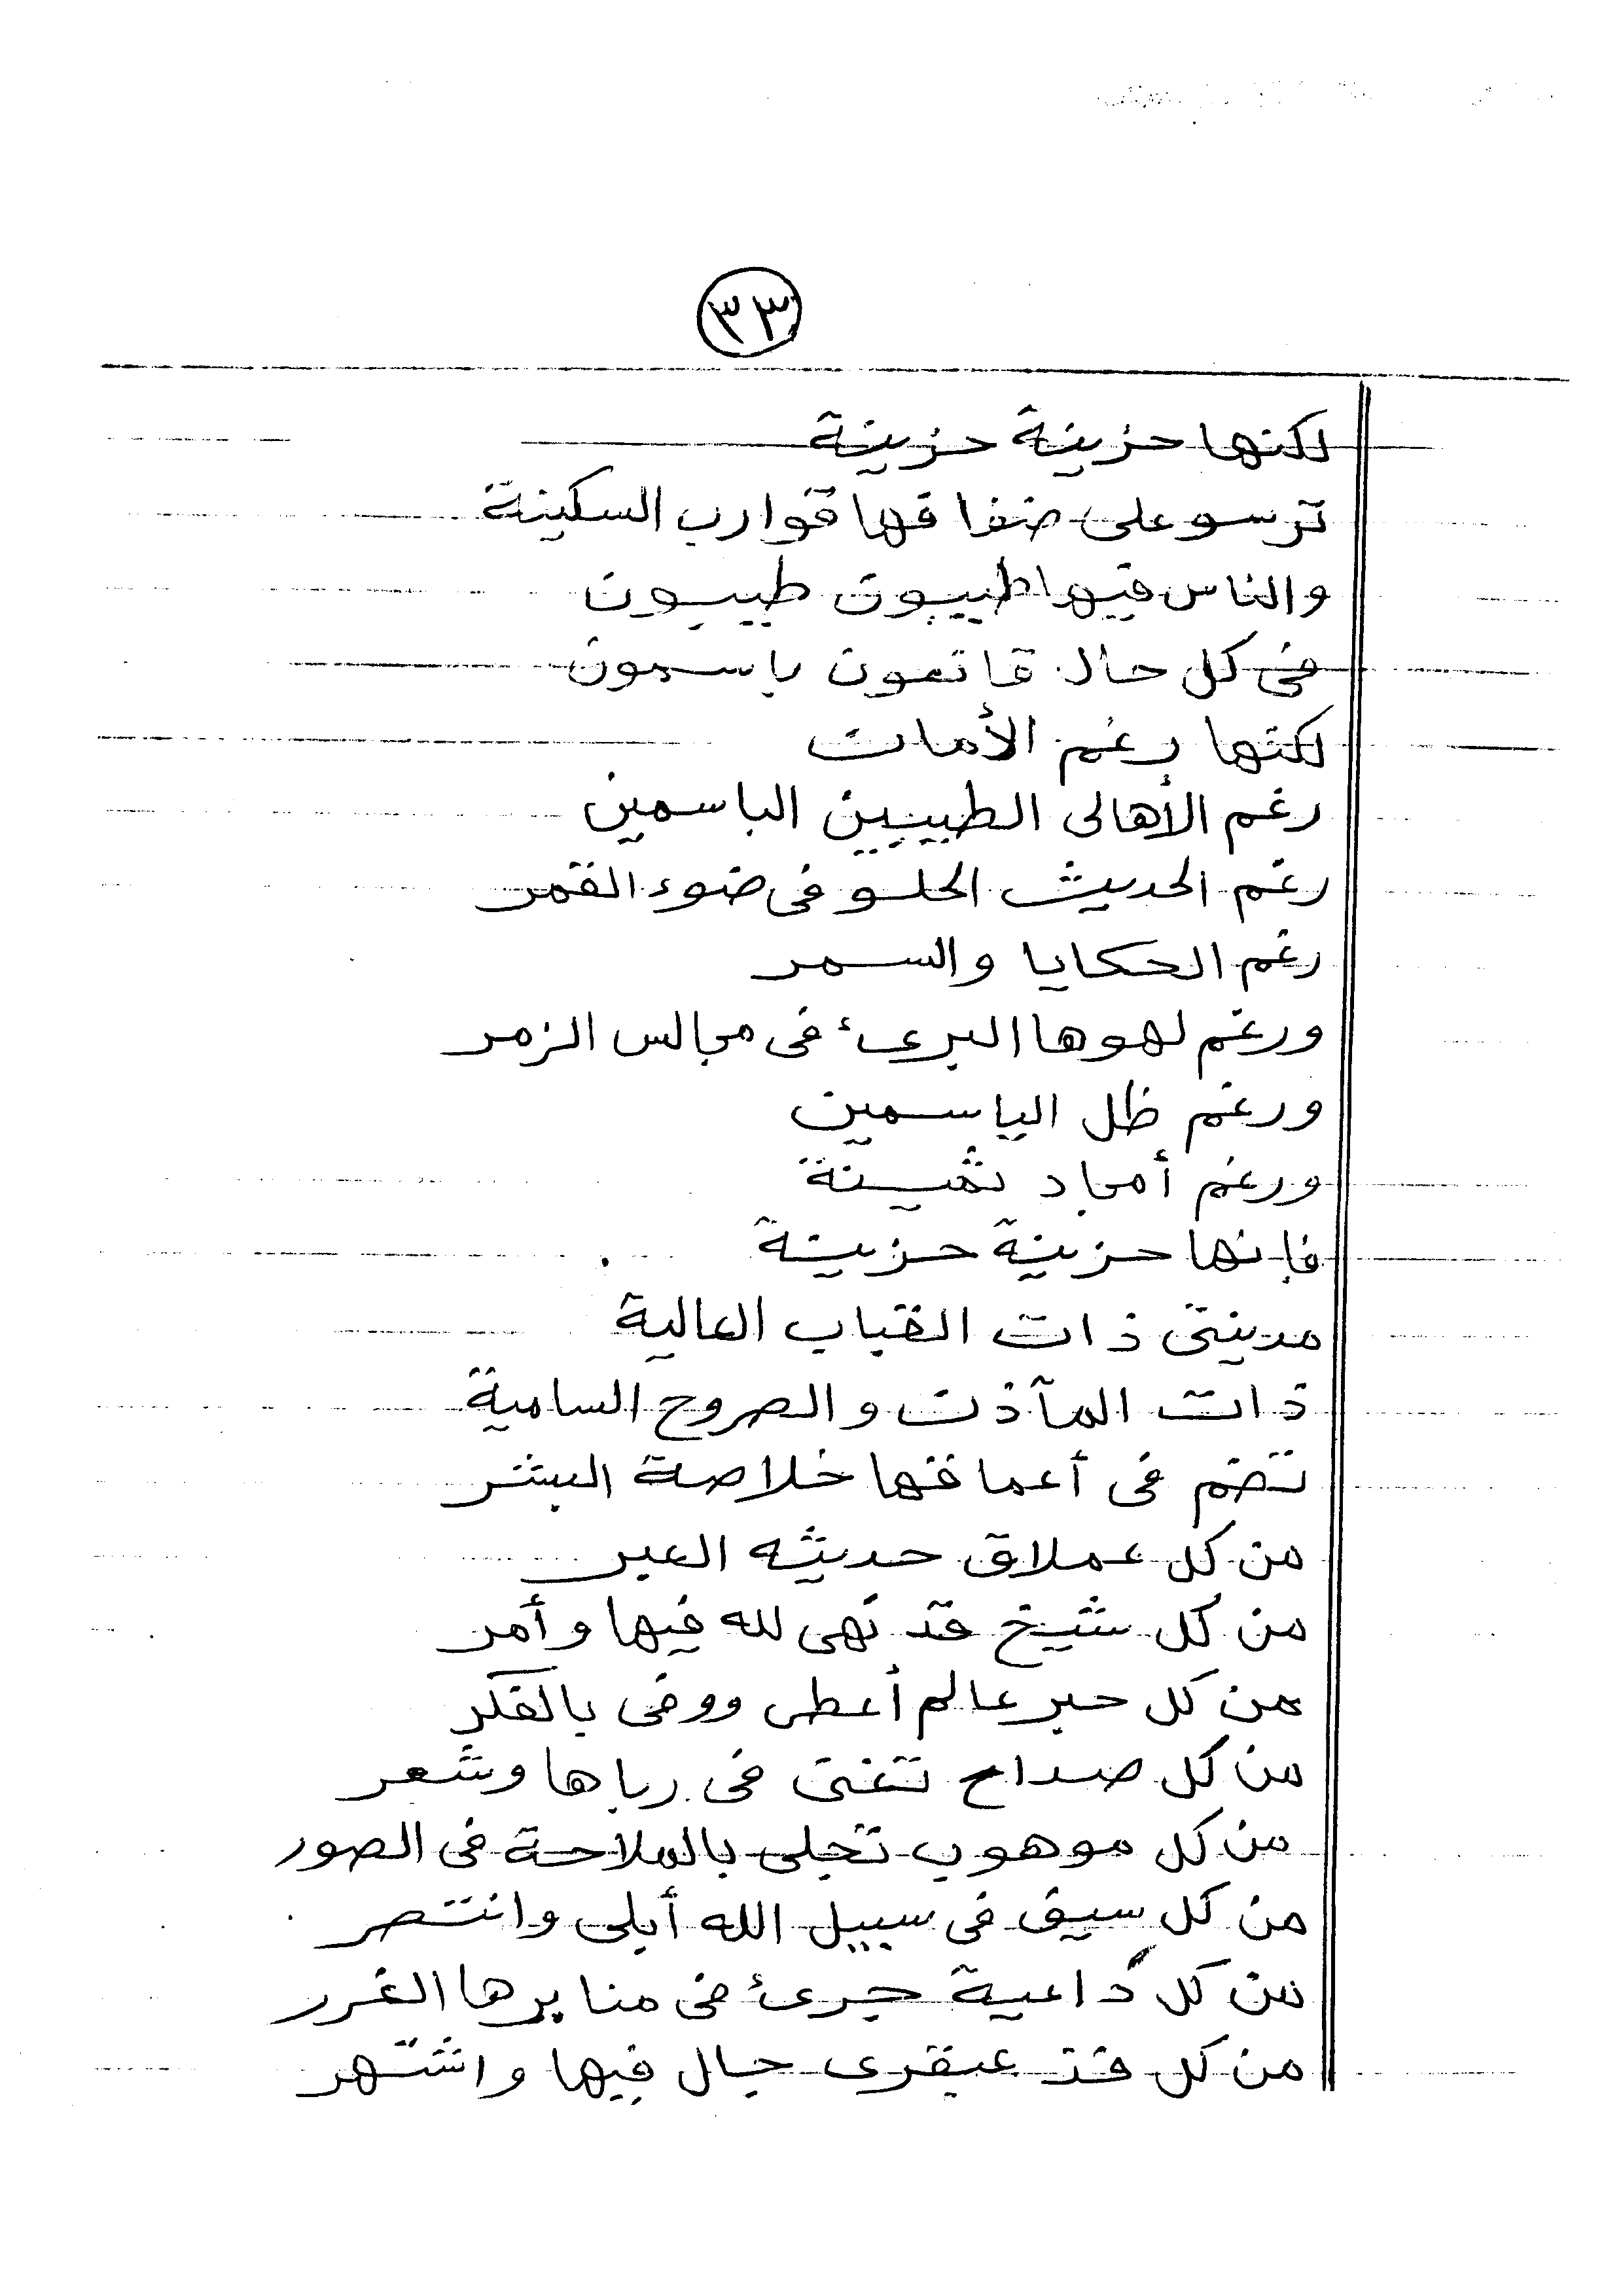 ٣٣
لكنها حزينة حزينة
ترسو على ضفافها قوارب السكينة
والناس فيها طيبون طيبون
فى كل حال قانعون باسمون
لكنها رغم الأمان
رغم الأهالى الطيبين الباسمين
رغم الحديث الحلو فى ضوء القمر
رغم الحكايا والسمر
ورغم لهوها البرىء فى مجالس الزمر
ورغم ظل الياسمين
ورغم أمجاد ثمينة
فإنها حزينة حزينة
مدينتى ذات القباب العالية
ذات المآذن والصروح السامية
تضم فى أعماقها خلاصة البشر
من كل عملاق حديثه العبر
من كل شيخ قد نهى لله فيها وأمر
من كل حبر عالم أعطى ووفى بالفكر
من كل صداح تغنى فى رباها وشعر
من كل موهوب تجلى بالملاحة فى الصور
من كل سيف فى سبيل الله أبلى وانتصر
من كل داعية جرىء فى منابرها الغرر
من كل فذ عبقرى جال فيها واشتهر